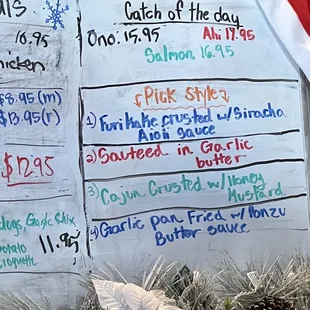 ls
10.95
hicken
$8.95(m)
$13.95(r)
$12.95
dogs, Garlic Chix
potato
croquette
11.95
Catch of the day
Ono: 15.95
Ahi 17.95
Salmon 16.95
Pick Style
1) Furikake crusted w/ Siracha
Aioli sauce
2) Sauteed in Garlic
butter
3) Cajun Crusted w/ Honey
Mustard
4) Garlic pan Fried w/ Ponzu
Butter sauce